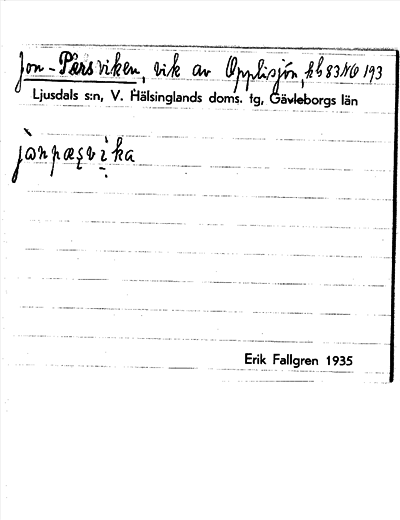 Jon-Pärsviken, vik av Opplisjön, kb 83 NO 193
Ljusdals s:n, V. Hälsinglands doms. tg, Gävleborgs län
jànpæşvị̀ka
Erik Fallgren 1935